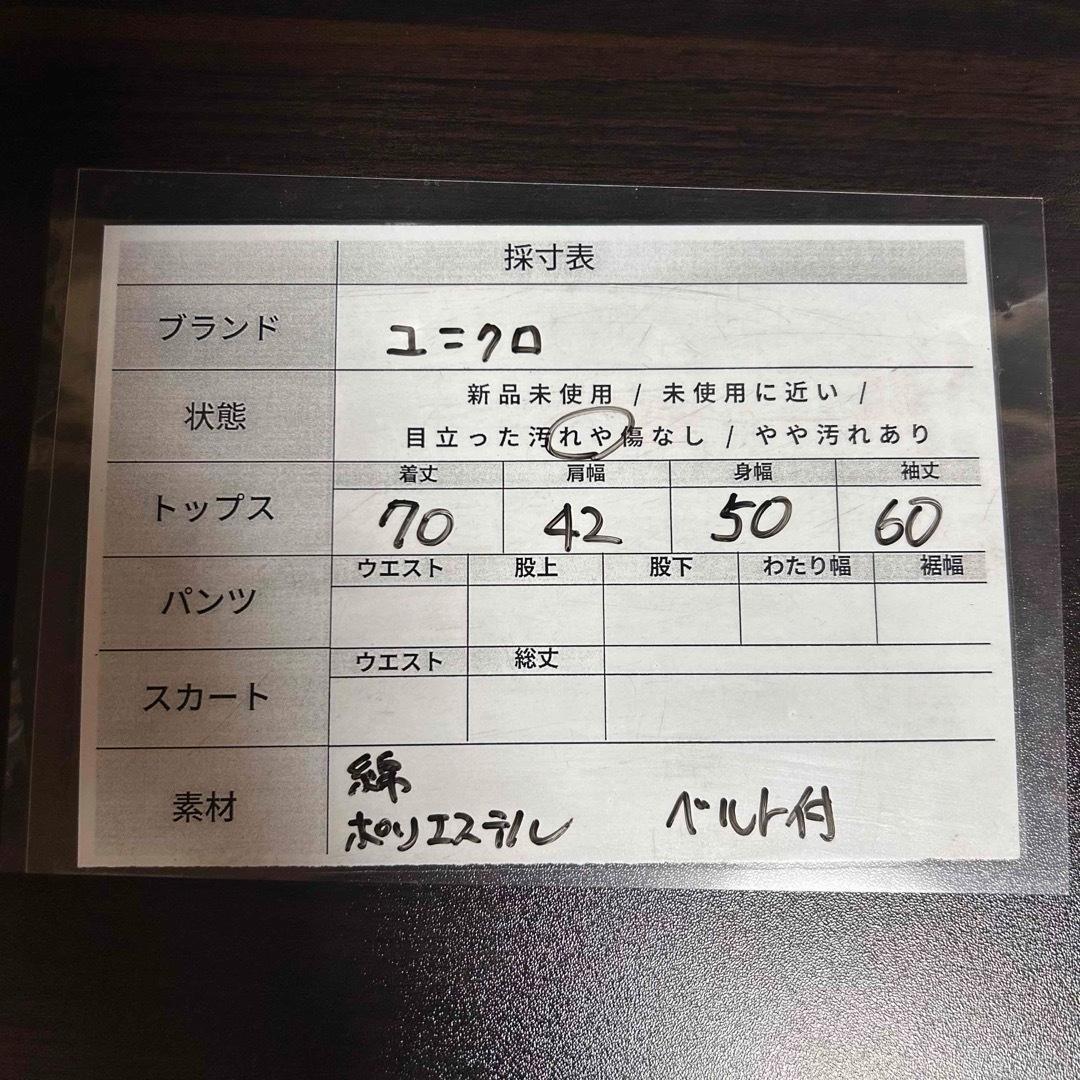 採寸表
ブランド
ユニクロ
状態
新品未使用 / 未使用に近い /
目立った汚れや傷なし / やや汚れあり
トップス
着丈 肩幅 身幅 袖丈
70 42 50 60
パンツ
ウエスト 股上 股下 わたり幅 裾幅
スカート
ウエスト 総丈
素材
綿
ポリエステル ベルト付